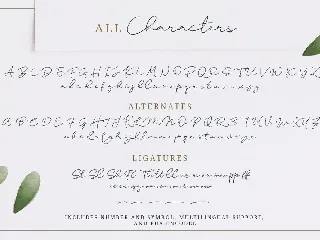 ALL Characters
A B C D E F G H I J K L M N O P Q R S T U V W X Y Z
a b c d e f g h i j k l m n o p q r s t u v w x y z
ALTERNATES
A B C D E F G H I J K L M N O P Q R S T U V W X Y Z
a b c d e f g h i j k l m n o p q r s t u v w x y z
LIGATURES
INCLUDES NUMBER AND SYMBOL, MULTILINGUAL SUPPORT,
AND PUA ENCODED.